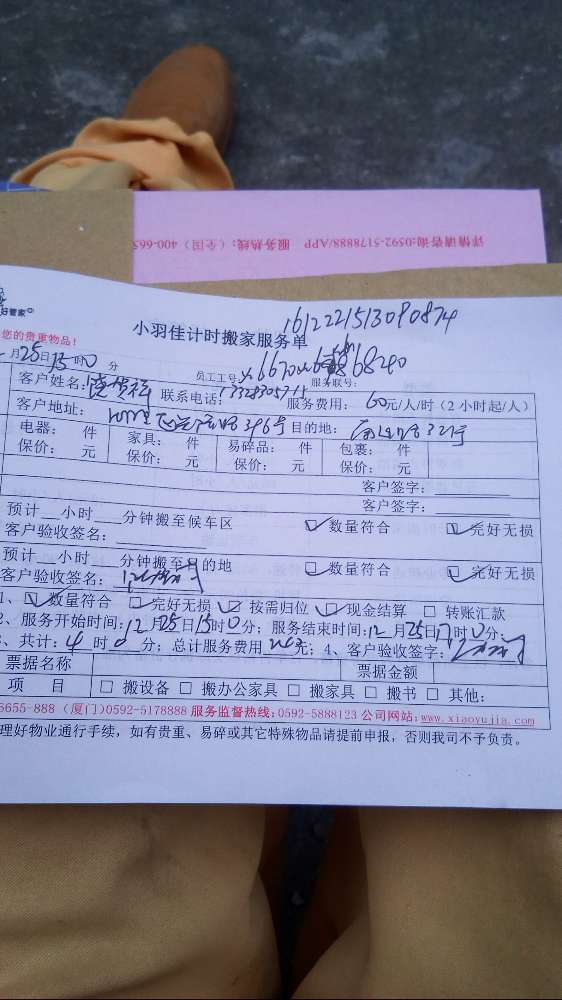 详情请咨询:0592-5178888/APP 服务热线:(全国) 400-665
好管家
您的贵重物品!
小羽佳计时搬家服务单
1612221513090874
月25日15时0分
员工工号 服务联号:
客户姓名: 联系电话: 服务费用: 60元/人/时(2小时起/人)
客户地址: 396号 目的地: 321号
电器: 件 家具: 件 易碎品: 件 包裹: 件
保价: 元 保价: 元 保价: 元 保价: 元
客户签字:
客户签字:
预计 小时 分钟搬至候车区 数量符合 完好无损
客户验收签名:
预计 小时 分钟搬至目的地 数量符合 完好无损
客户验收签名:
1、 数量符合 完好无损 按需归位 现金结算 转账汇款
2、服务开始时间:12月25日15时0分; 服务结束时间:12月25日17时0分;
3、共计:4时0分; 总计服务费用 元; 4、客户验收签字:
票据名称 票据金额
项 目 搬设备 搬办公家具 搬家具 搬书 其他:
6655-888 (厦门)0592-5178888 服务监督热线:0592-5888123 公司网站:www.xiaoyujia.com
理好物业通行手续,如有贵重、易碎或其它特殊物品请提前申报,否则我司不予负责。